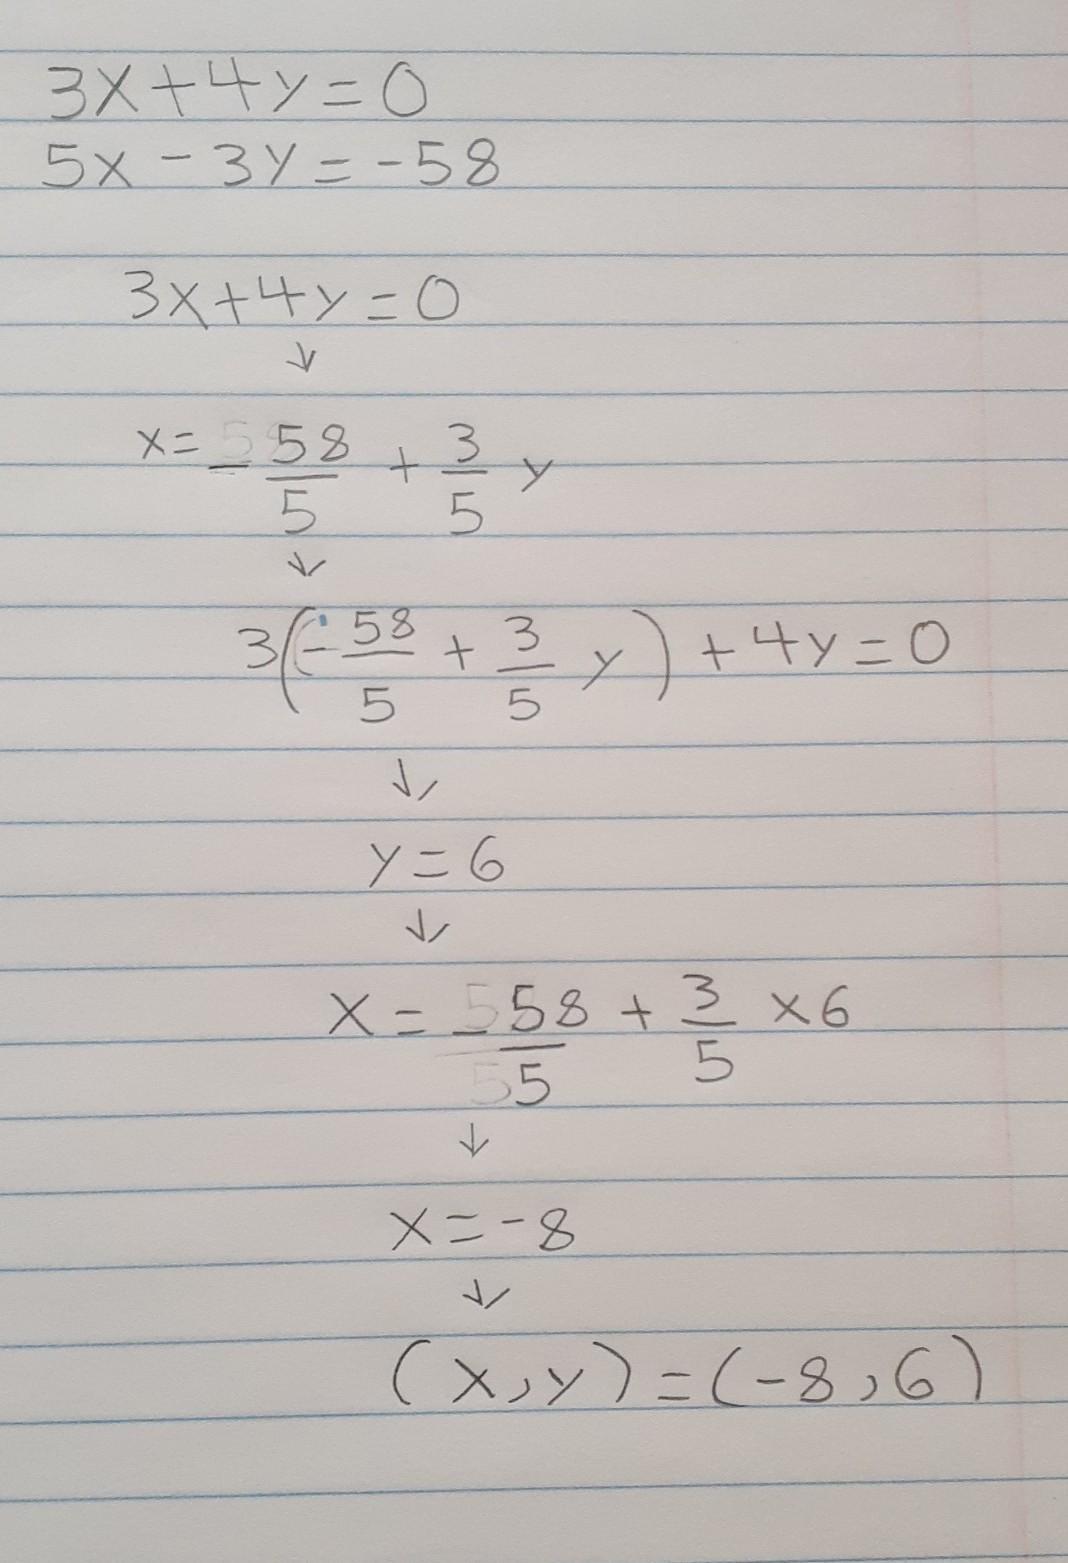 3x+4y=0
5x-3y=-58
3x+4y=0
↓
x=-58/5+3/5y
↓
3(-58/5+3/5y)+4y=0
↓
y=6
↓
x=-58/5+3/5×6
↓
x=-8
↓
(x,y)=(-8,6)